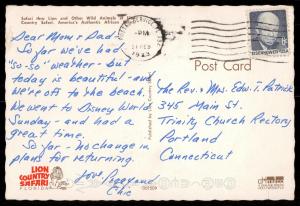 Safari Hey Lion and Other Wild Animals
Country Safari, America's Authentic African
Dear Mom & Dad,
So far we've had
"so-so" weather - but
today is beautiful - and
we're off to the beach.
We went to Disney World
Sunday - and had a
great time.
So far - no change in
plans for returning.
Love, Peggy and
Chic
LION
COUNTRY
SAFARI
FLORIDA
PM
1973
EISENHOWER USA
Post Card
The Rev. & Mrs. Edw. T. Patrick
345 Main St.
Trinity Church Rectory
Portland
Connecticut